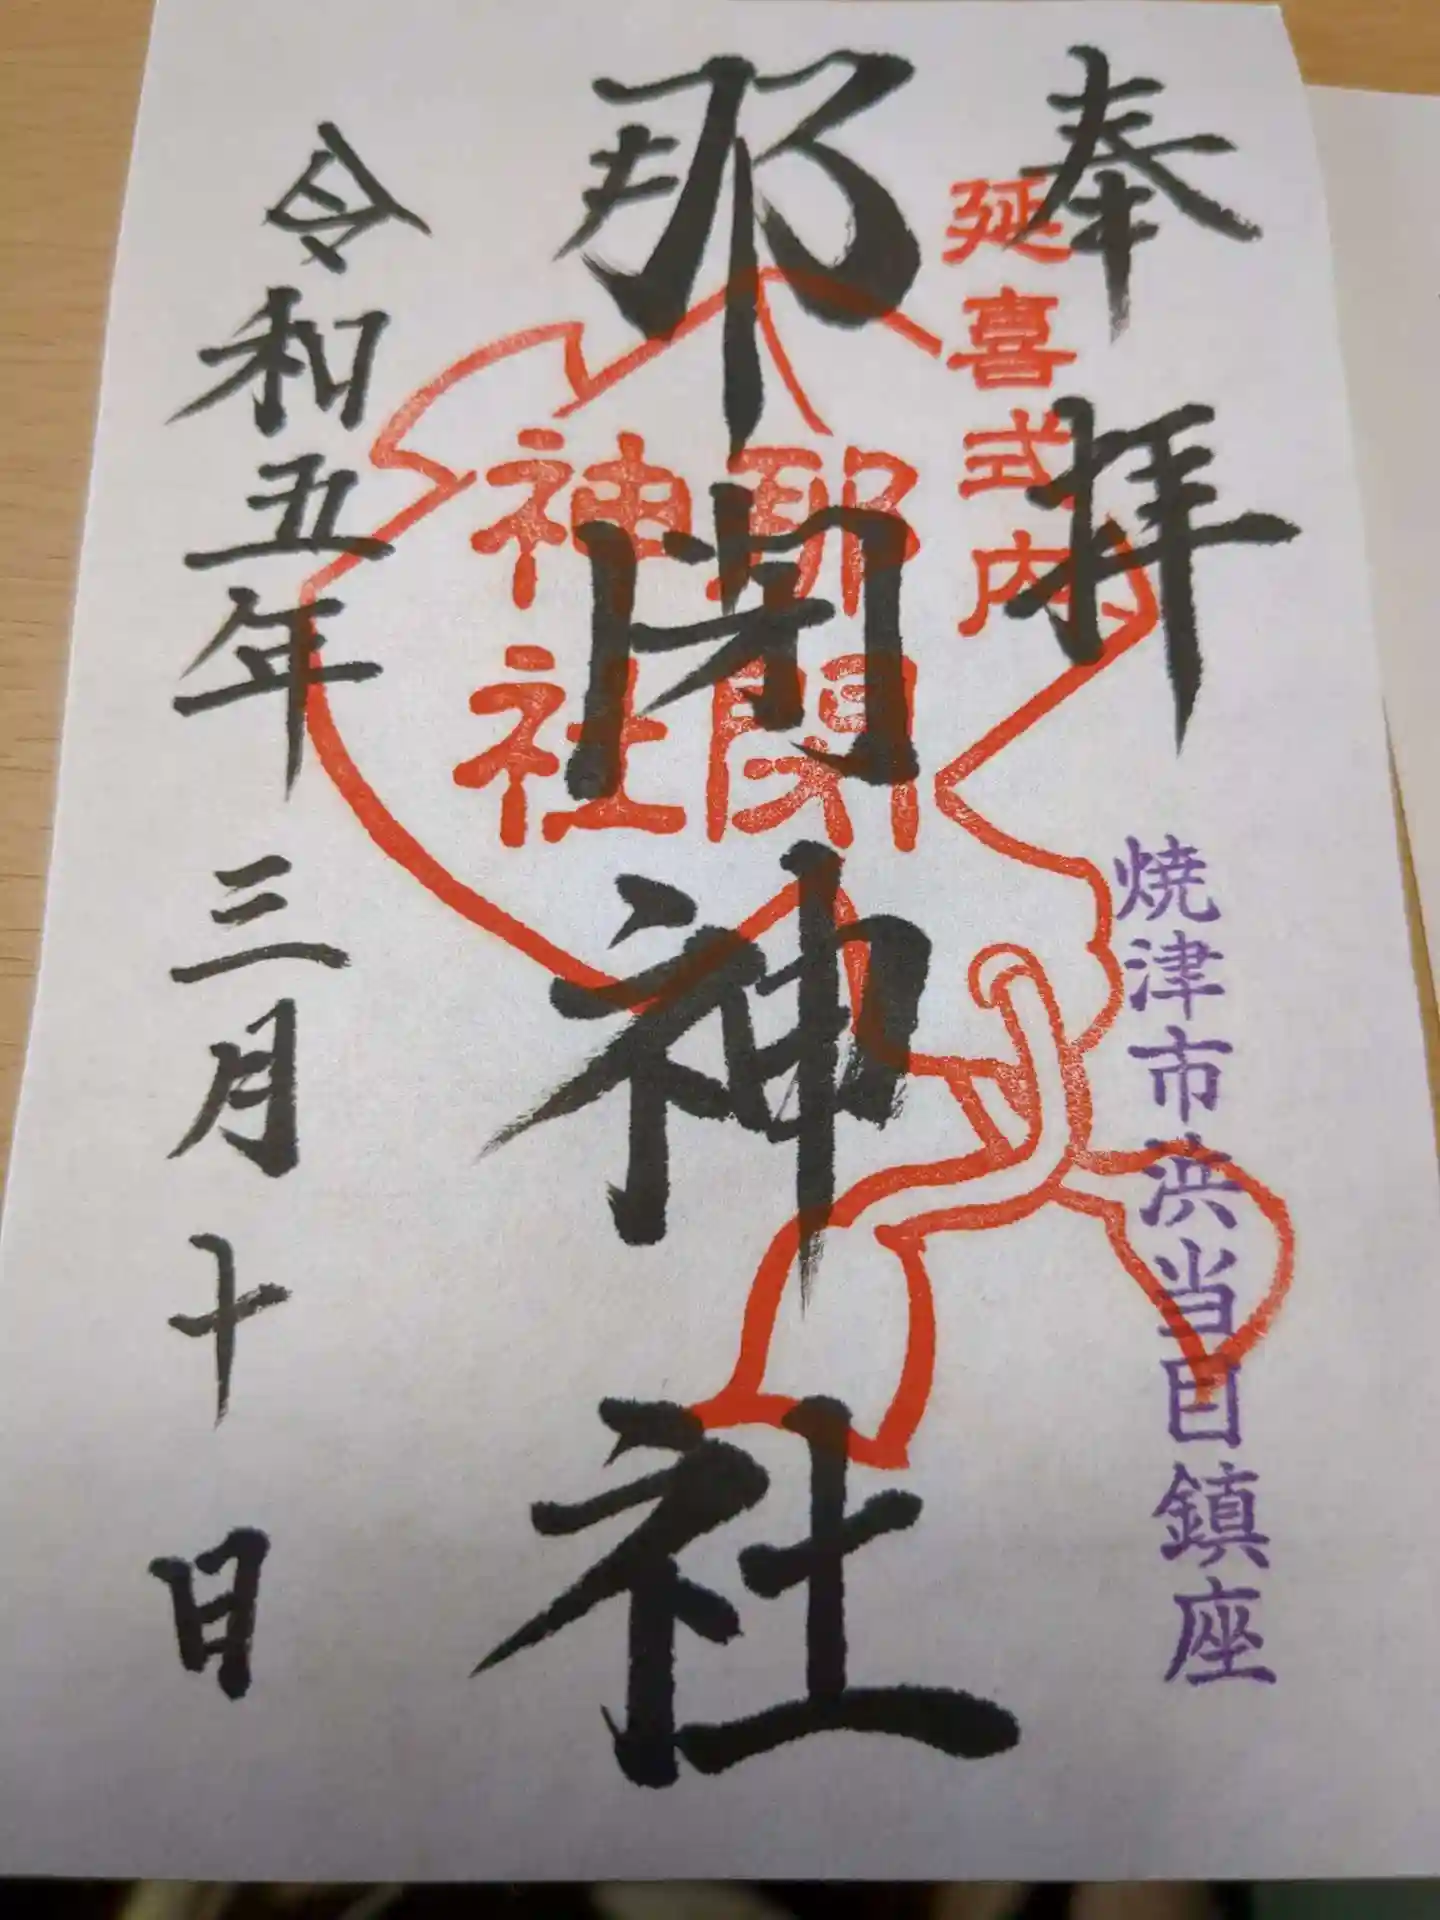 奉拝
延喜式内
焼津市浜当目鎮座
那閉神社
那閉
神社
令和五年三月十日